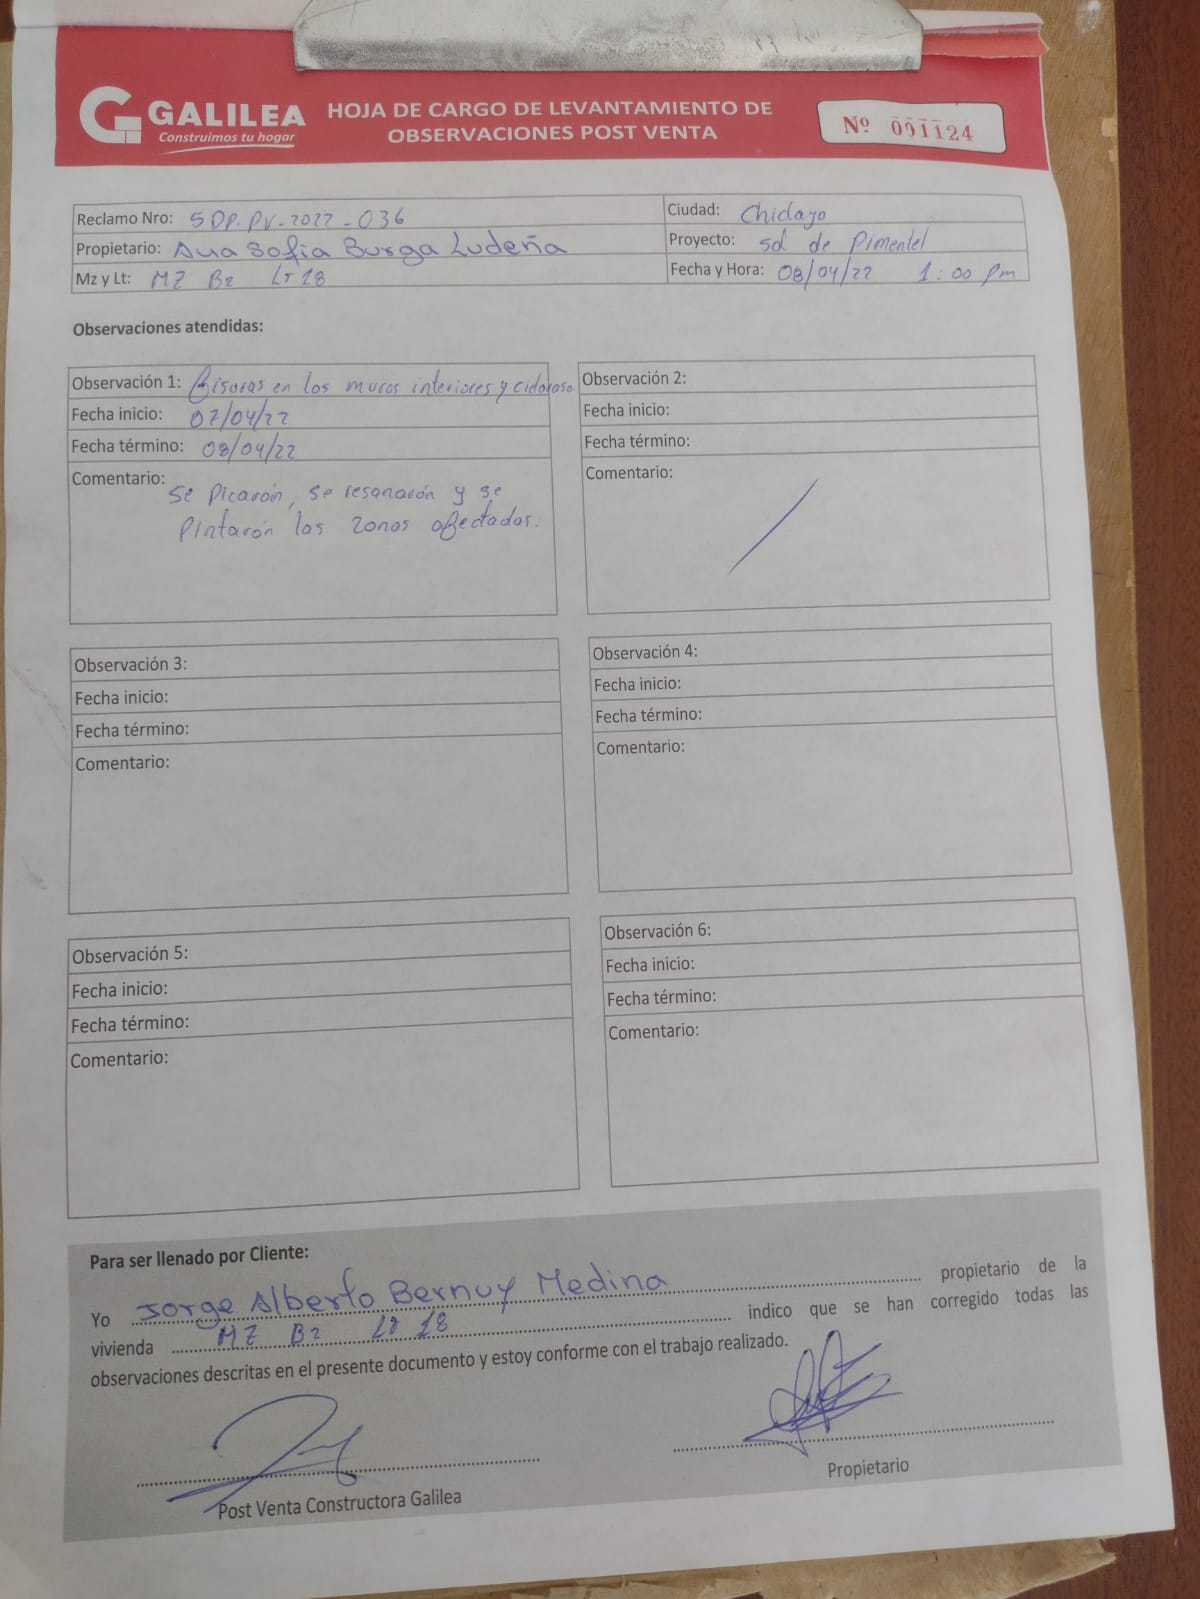 GALILEA
Construimos tu hogar
HOJA DE CARGO DE LEVANTAMIENTO DE
OBSERVACIONES POST VENTA
Nº 001124
Reclamo Nro: SDP.PV-2022-036
Ciudad: Chiclayo
Propietario: Ana Sofia Burga Ludeña
Proyecto: Sol de Pimentel
Mz y Lt: MZ B2 Lt 18
Fecha y Hora: 08/04/22 1:00 pm
Observaciones atendidas:
Observación 1: Fisuras en los muros interiores y cieloraso.
Fecha inicio: 07/04/22
Fecha término: 08/04/22
Comentario: Se Picarón, se resanarón y se
Pintarón las zonas afectadas.
Observación 2:
Fecha inicio:
Fecha término:
Comentario:
Observación 3:
Fecha inicio:
Fecha término:
Comentario:
Observación 4:
Fecha inicio:
Fecha término:
Comentario:
Observación 5:
Fecha inicio:
Fecha término:
Comentario:
Observación 6:
Fecha inicio:
Fecha término:
Comentario:
Para ser llenado por Cliente:
Yo Jorge Alberto Bernuy Medina propietario de la
vivienda MZ B2 Lt 18 indico que se han corregido todas las
observaciones descritas en el presente documento y estoy conforme con el trabajo realizado.
Post Venta Constructora Galilea
Propietario